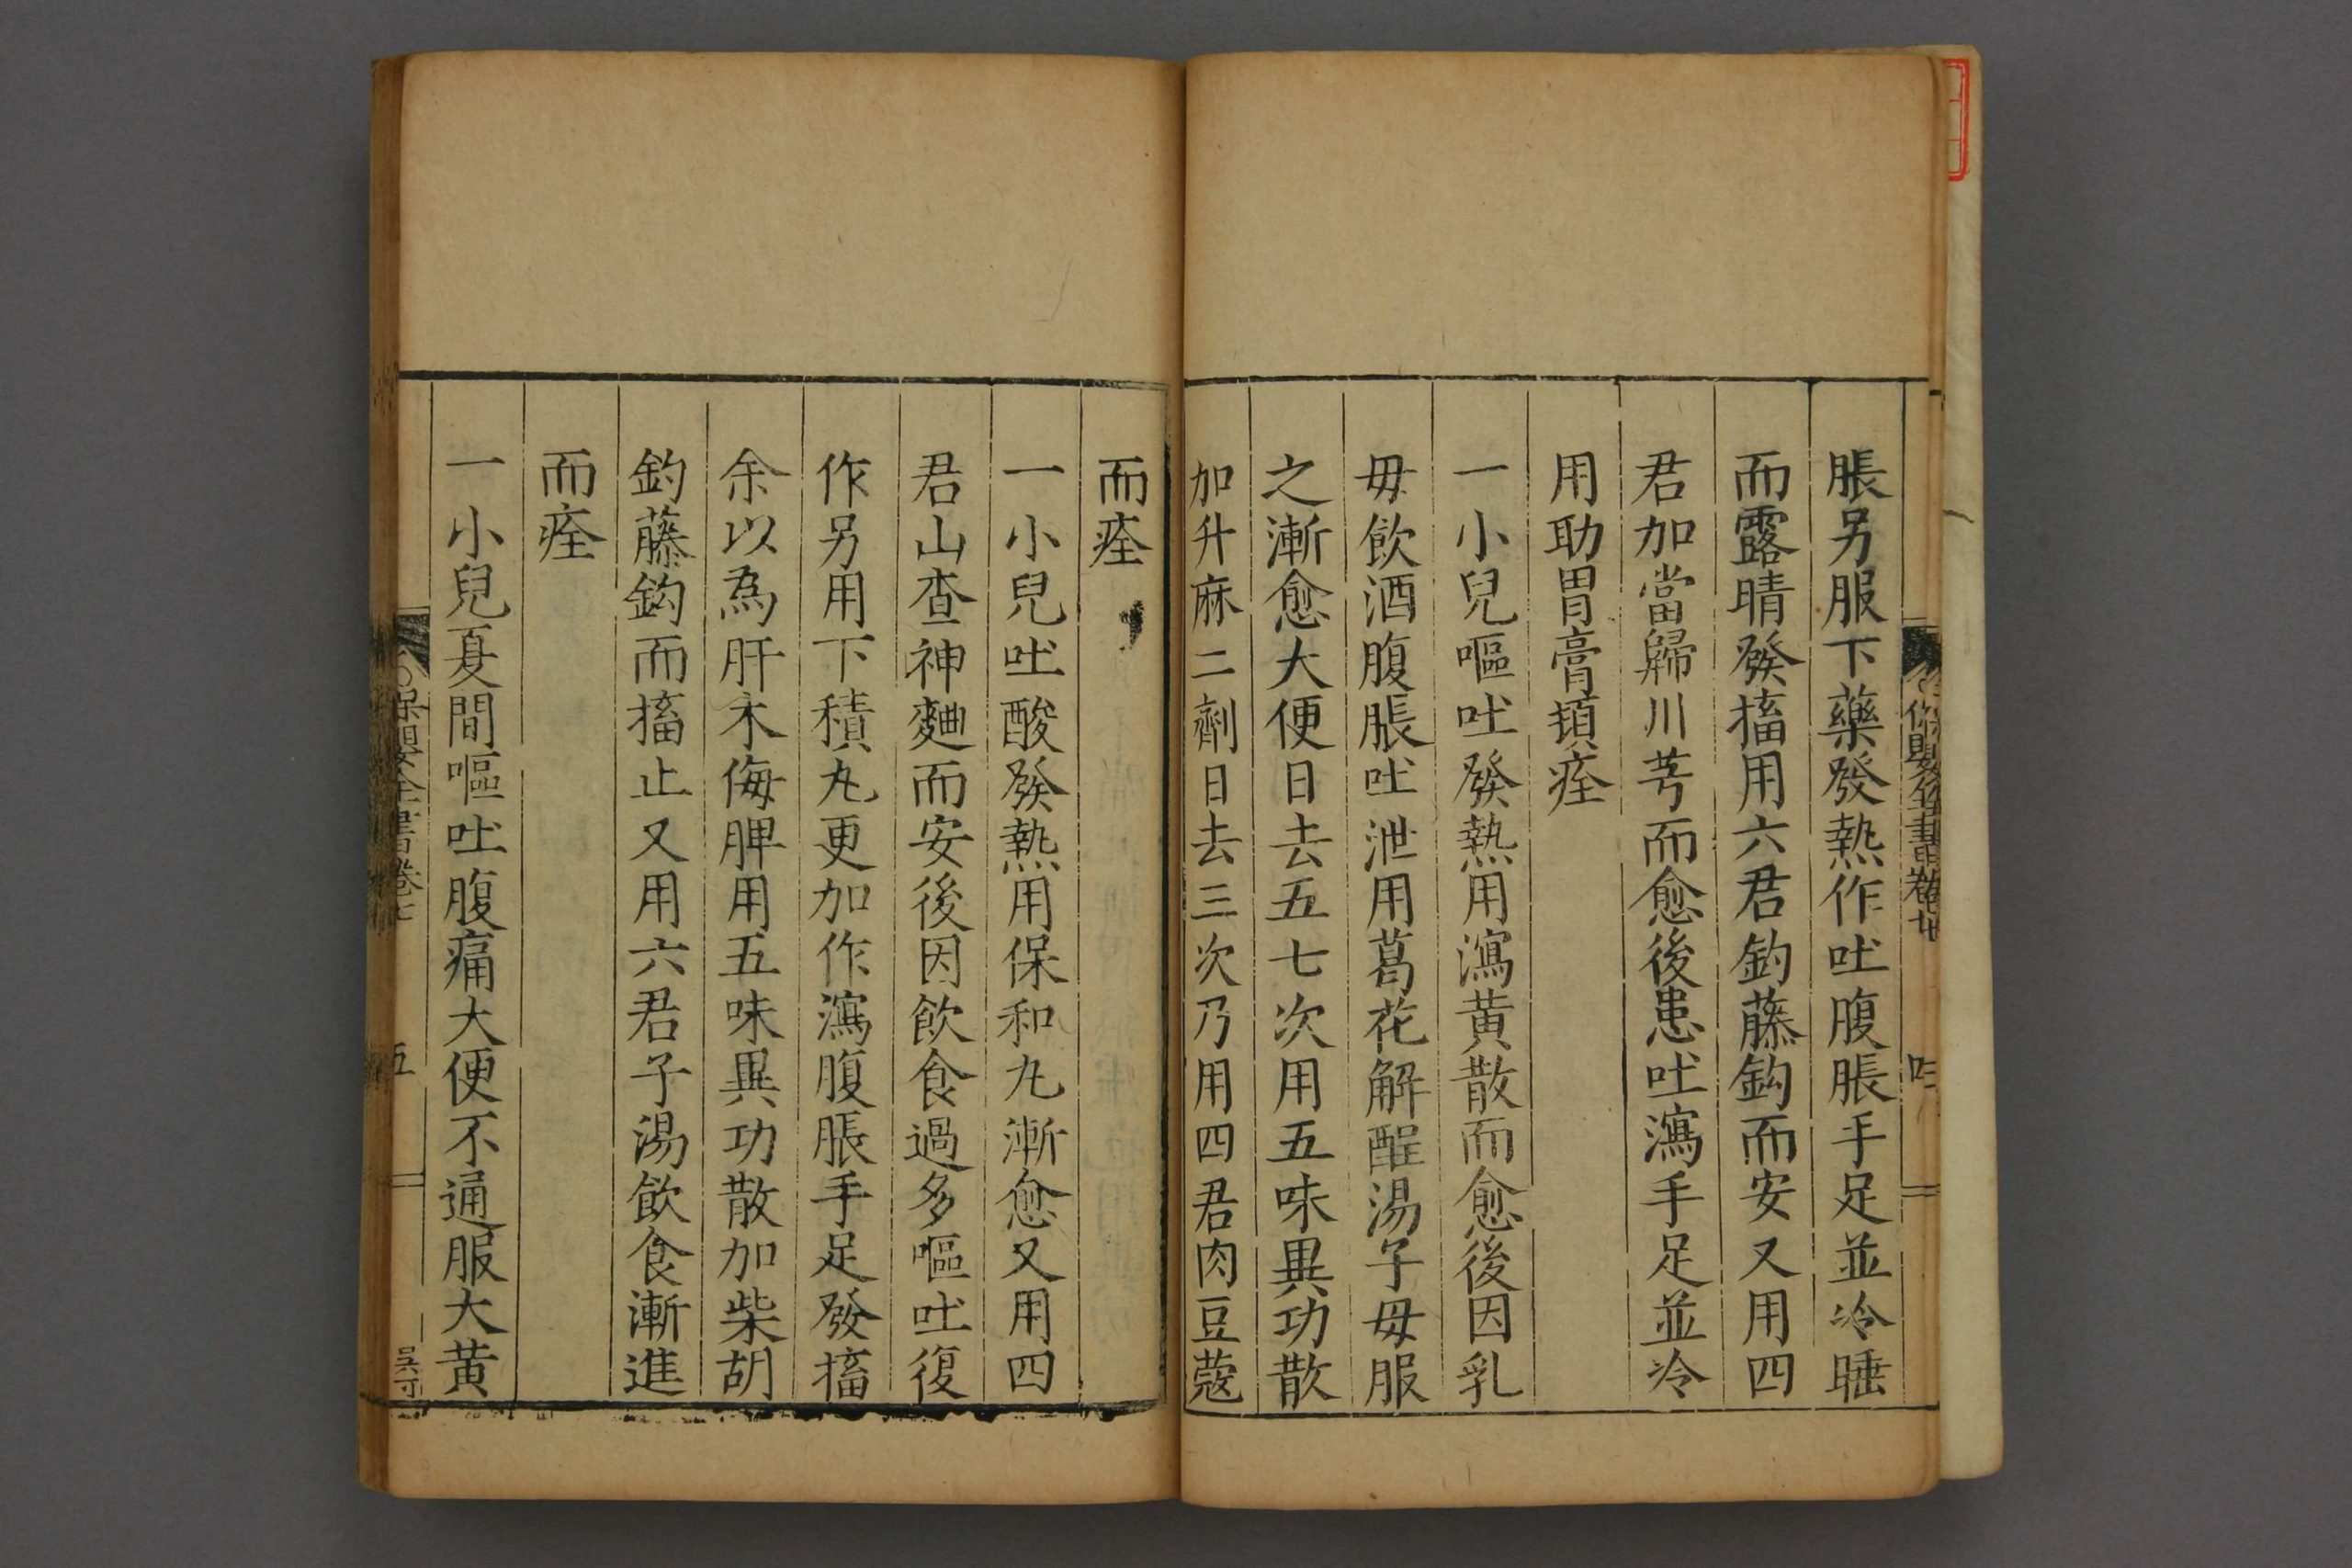 脹另服下藥發熱作吐腹脹手足並冷睡
而露睛發搐用六君釣藤鈎而安又用四
君加當歸川芎而愈後患吐瀉手足並冷
用助胃膏頓痊
一小兒嘔吐發熱用瀉黄散而愈後因乳
毋飲酒腹脹吐泄用葛花解酲湯子毋服
之漸愈大便日去五七次用五味異功散
加升麻二劑日去三次乃用四君肉豆蔻
而痊
一小兒吐酸發熱用保和丸漸愈又用四
君山查神麯而安後因飲食過多嘔吐復
作另用下積丸更加作瀉腹脹手足發搐
余以為肝木侮脾用五味異功散加柴胡
釣藤鈎而搐止又用六君子湯飲食漸進
而痊
一小兒夏間嘔吐腹痛大便不通服大黄
保嬰全書卷七
五